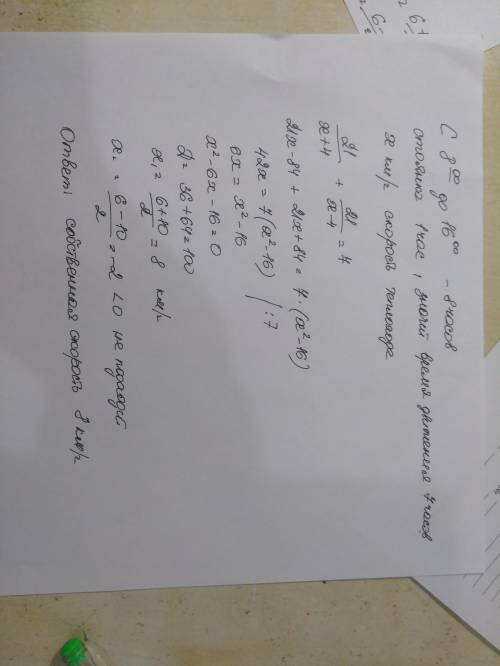 С 8⁰⁰ до 16⁰⁰ – 8 часов
стоянка 1 час, значит время движения 7 часов
x км/ч скорость теплохода
21/(x+4) + 21/(x-4) = 7
21x-84 + 21x+84 = 7·(x²-16)
42x = 7(x²-16) | :7
6x = x²-16
x²-6x-16=0
D = 36+64=100
x₁ = (6+10)/2 = 8 км/ч
x₂ = (6-10)/2 = -2 <0 не подходит
Ответ: собственная скорость 8 км/ч